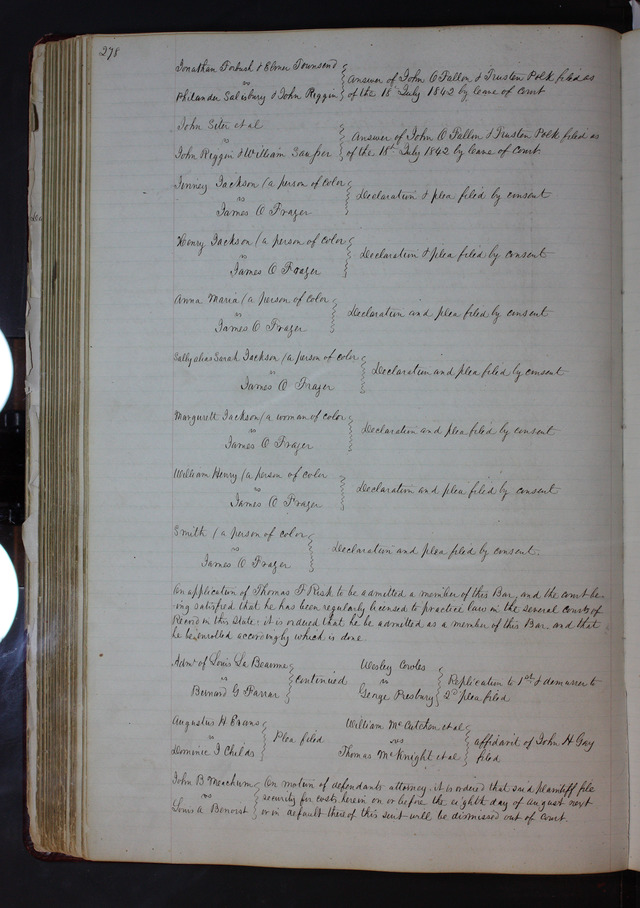 278
Jonathan Forbush & Elmer Townsend
vs
Philander Salisbury & John Riggin
Answer of John O Fallon & Trusten Polk filed as
of the 18 July 1842 by leave of court
John Siter et al
vs
John Riggin & William Sauper
Answer of John O Fallon & Trusten Polk filed as
of the 18th July 1842 by leave of Court.
Jinney Jackson (a person of color
vs
James O Frazer
Declaration & plea filed by consent
Henry Jackson (a person of color
vs
James O Frazer
Declaration & plea filed by consent
Anna Maria (a person of color
vs
James O Frazer
Declaration and plea filed by consent
Sally alias Sarah Jackson (a person of color
vs
James O Frazer
Declaration and plea filed by consent
Margurett Jackson (a woman of color
vs
James O Frazer
Declaration and plea filed by consent
William Henry (a person of color
vs
James O Frazer
Declaration and plea filed by consent
Smith (a person of color
vs
James O Frazer
Declaration and plea filed by consent.
On application of Thomas F Risk to be admitted a member of this Bar, and the court be-
ing satisfied that he has been regularly licensed to practice law in the several courts of
Record in this State: it is ordered that he be admitted as a member of this Bar and that
he be enrolled accordingly which is done
Admr of Louis La Beaume
vs
Bernard G Farrar
continued
Wesley Cowles
vs
George Presbury
Replication to 1st & demurrer to
2d plea filed
Augustus H Evans
vs
Dominic J Childs
Plea filed
William McCutchen et al
vs
Thomas McKnight et al
affidavit of John H Gay
filed
John B Meachum
vs
Louis A Benoist
On motion of defendants attorney it is ordered that said plaintiff file
security for costs herein on or before the eighth day of August next
or in default thereof this suit will be dismissed out of Court.